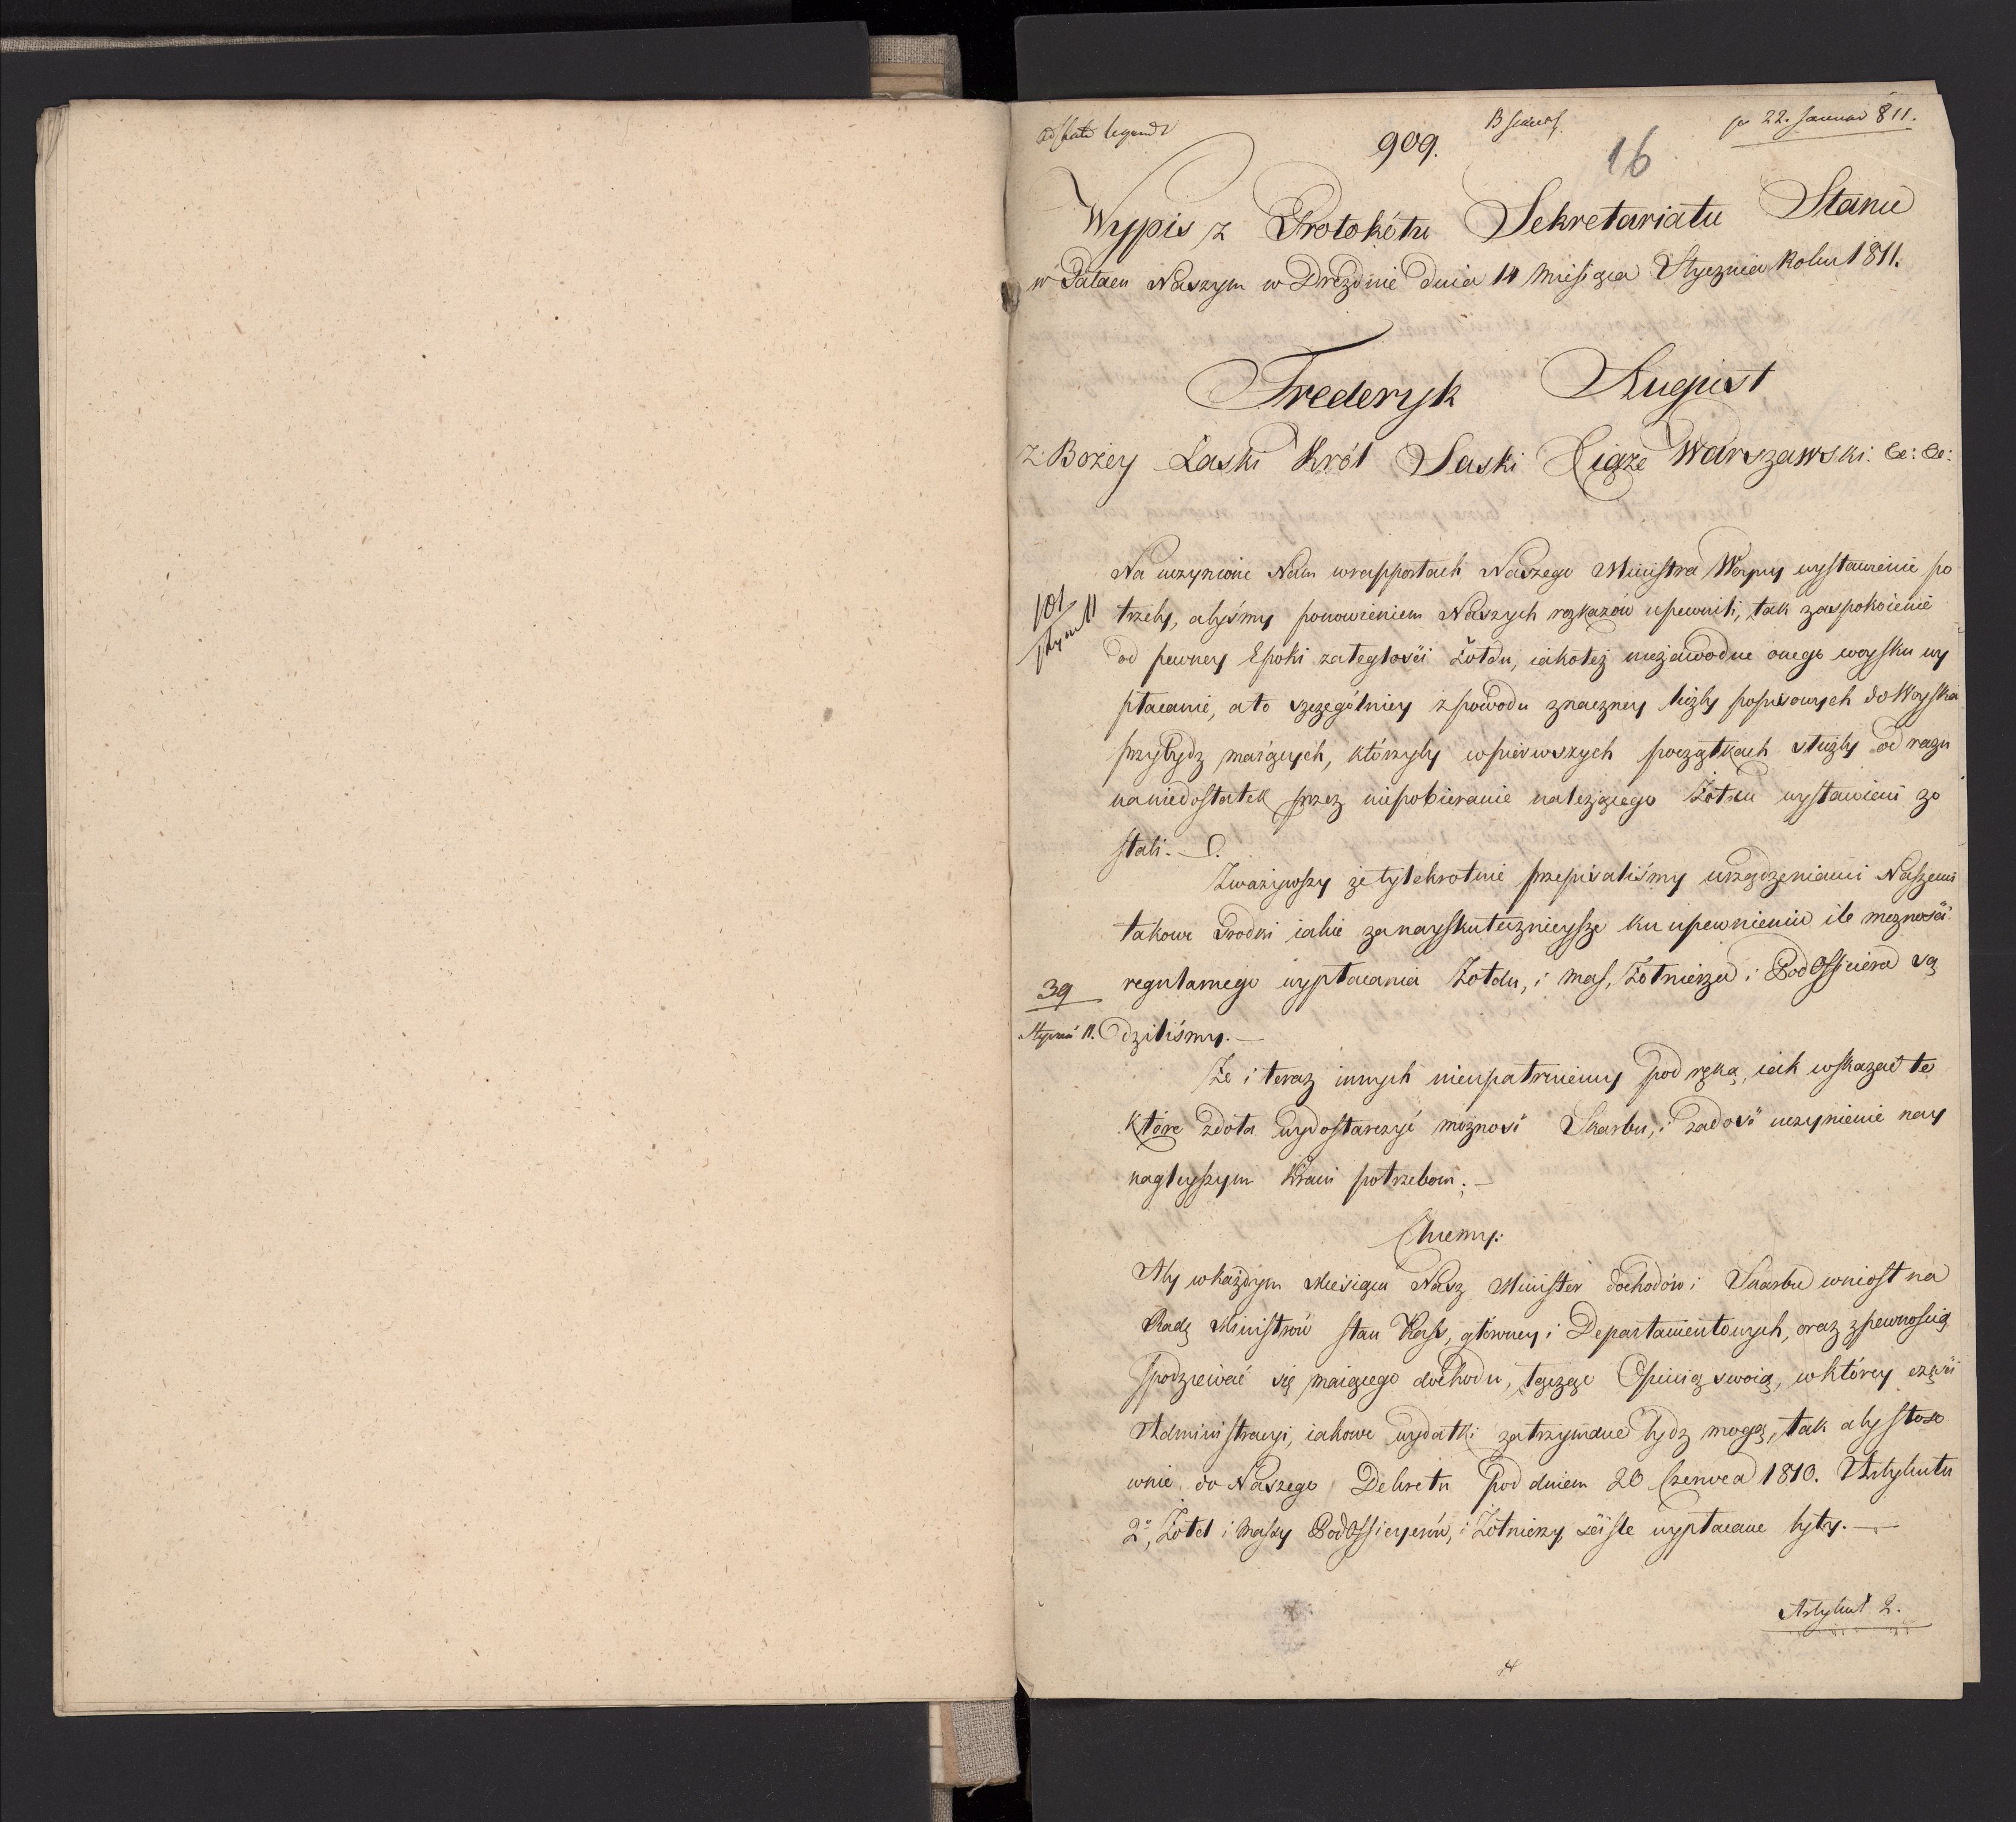 909.
16
22. Januar 811.
Wypis z Protokółu Sekretariatu Stanu
w Pałacu Naszym w Dreźnie Dnia 14 Miesiąca Stycznia Roku 1811.
Frederyk August
Z Bożey Łaski Król Saski Xiąże Warszawski &: &:
Na uczynione Nam w rapportach Naszego Ministra Woyny wystawienie po
101
trzeby, abyśmy ponowieniem Naszych rozkazów upewnili, tak zaspokoienie
od pewney Epoki zaległości żołdu, iakoteż niezawodne onego woysku wy
płacanie, a to szczególniey z powodu znaczney liczby popisowych do Woyska
przybydz maiących, którzyby w pierwszych początkach służby od razu
na niedostatek przez niepobieranie należącego Żołdu wystawieni zo
stali.
Zważywszy że tylekrotnie przepisaliśmy urządzeniami Naszemi
takowe Srodki iakie za nayskutecznieysze ku upewnieniu ile możności
regularnego wypłacania Żołdu, i Mass, Żołnierza i PodOfficiera są
39
Styczeń 11.
dziliśmy.
Że i teraz innych nieupatruiemy pod ręką, iak wskazać te
które zdoła wydostarczyć możność Skarbu, i zadość uczynienie nay
nagleyszym Kraiu potrzebom.
Chcemy:
Aby w każdym Miesiącu Nasz Minister dochodów i Skarbu wniosł na
Radę Ministrów stan Kass, główney i Departamentowych, oraz z pewnością
spodziewać się maiącego dochodu, łącząc Opinią swoią, w którey części
Administracyi, iakowe wydatki zatrzymane bydz mogą, tak aby stoso
wnie do Naszego Dekretu pod dniem 20 Czerwca 1810. Artykułu
2o, Żołd i Massy PodOfficyerów, i Żołnierzy ściśle wypłacane były.
Artykuł 2.